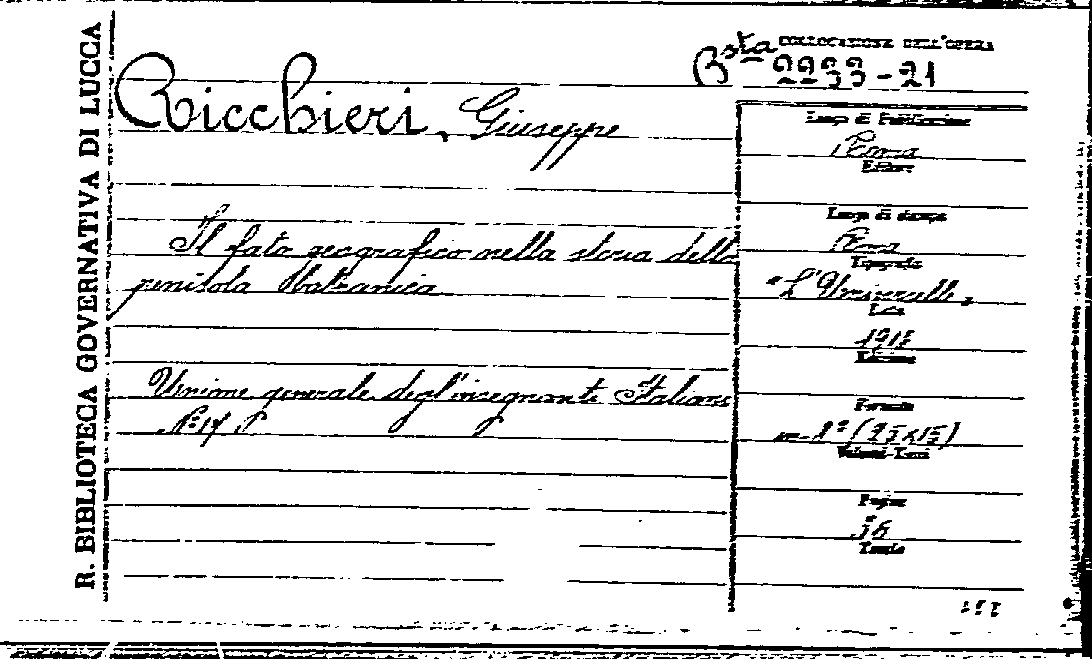 R. BIBLIOTECA GOVERNATIVA DI LUCCA
COLLOCAZIONE DELL'OPERA
Bsta 2233-21
Ricchieri, Giuseppe
Luogo di Pubblicazione
Roma
Editore
Luogo di stampa
Il fato geografico nella storia della
Roma
Tipografia
penisola Balcanica
"L'Universelle"
Data
Edizione
Unione generale degl'insegnanti Italiani
Formato
in-8° (25x15)
Volumi-Tomi
Pagine
36
Tavole